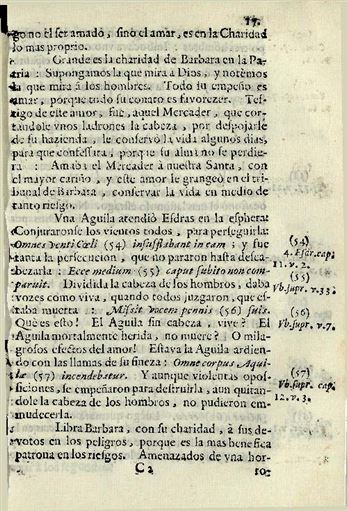 17.
go no el ser amado, sino el amar, es en la Charidad
lo mas proprio.
Grande es la charidad de Barbara en la Pa-
tria : Supongamos la que mira à Dios, y notèmos
la que mira à los hombres. Todo su empeño es
amar, porque todo su conato es favorezer. Tes-
tigo de este amor, fue, aquel Mercader, que cor-
tandole vnos ladrones la cabeza, por despojarle
de su hazienda, le conservò la vida algunos dias,
para que confessara, porque su alma no se perdie-
ra : Amaba el Mercader à nuestra Santa, con
el mayor cariño, y este amor le grangeò en el tri-
bunal de Barbara, conservar la vida en medio de
tanto riesgo.
Vna Aguila atendiò Esdras en la esphera:
Conjuraronse los vientos todos, para perseguirla:
Omnes venti Cœli (54) insufflabant in eam ; y fue
tanta la persecucion, que no pararon hasta desca-
bezarla : Ecce medium (55) caput subito non com-
paruit. Dividida la cabeza de los hombros, daba
vozes còmo viva, quando todos juzgaron, que es-
taba muerta : Missit vocem pennis (56) suis.
Què es esto! El Aguila sin cabeza, vive? El
Aguila mortalmente herida, no muere? O mila-
grosos efectos del amor! Estava la Aguila ardien-
do con las llamas de su fineza: Omne corpus Aqui-
læ (57) incendebatur. Y aunque violentas opos-
siciones, se empeñaron para destruirla, aun quitan-
dole la cabeza de los hombros, no pudieron em-
mudecerla.
Libra Barbara, con su charidad, à sus de-
votos en los peligros, porque es la mas benefica
patrona en los riesgos. Amenazados de vna hor-
C 2
ro-
(54)
4. Esdr. cap.
11. v. 2.
(55)
Vb. supr. v. 33.
(56)
Vb. supr. v. 7.
(57)
Vb. supr. cap.
12. v. 3.